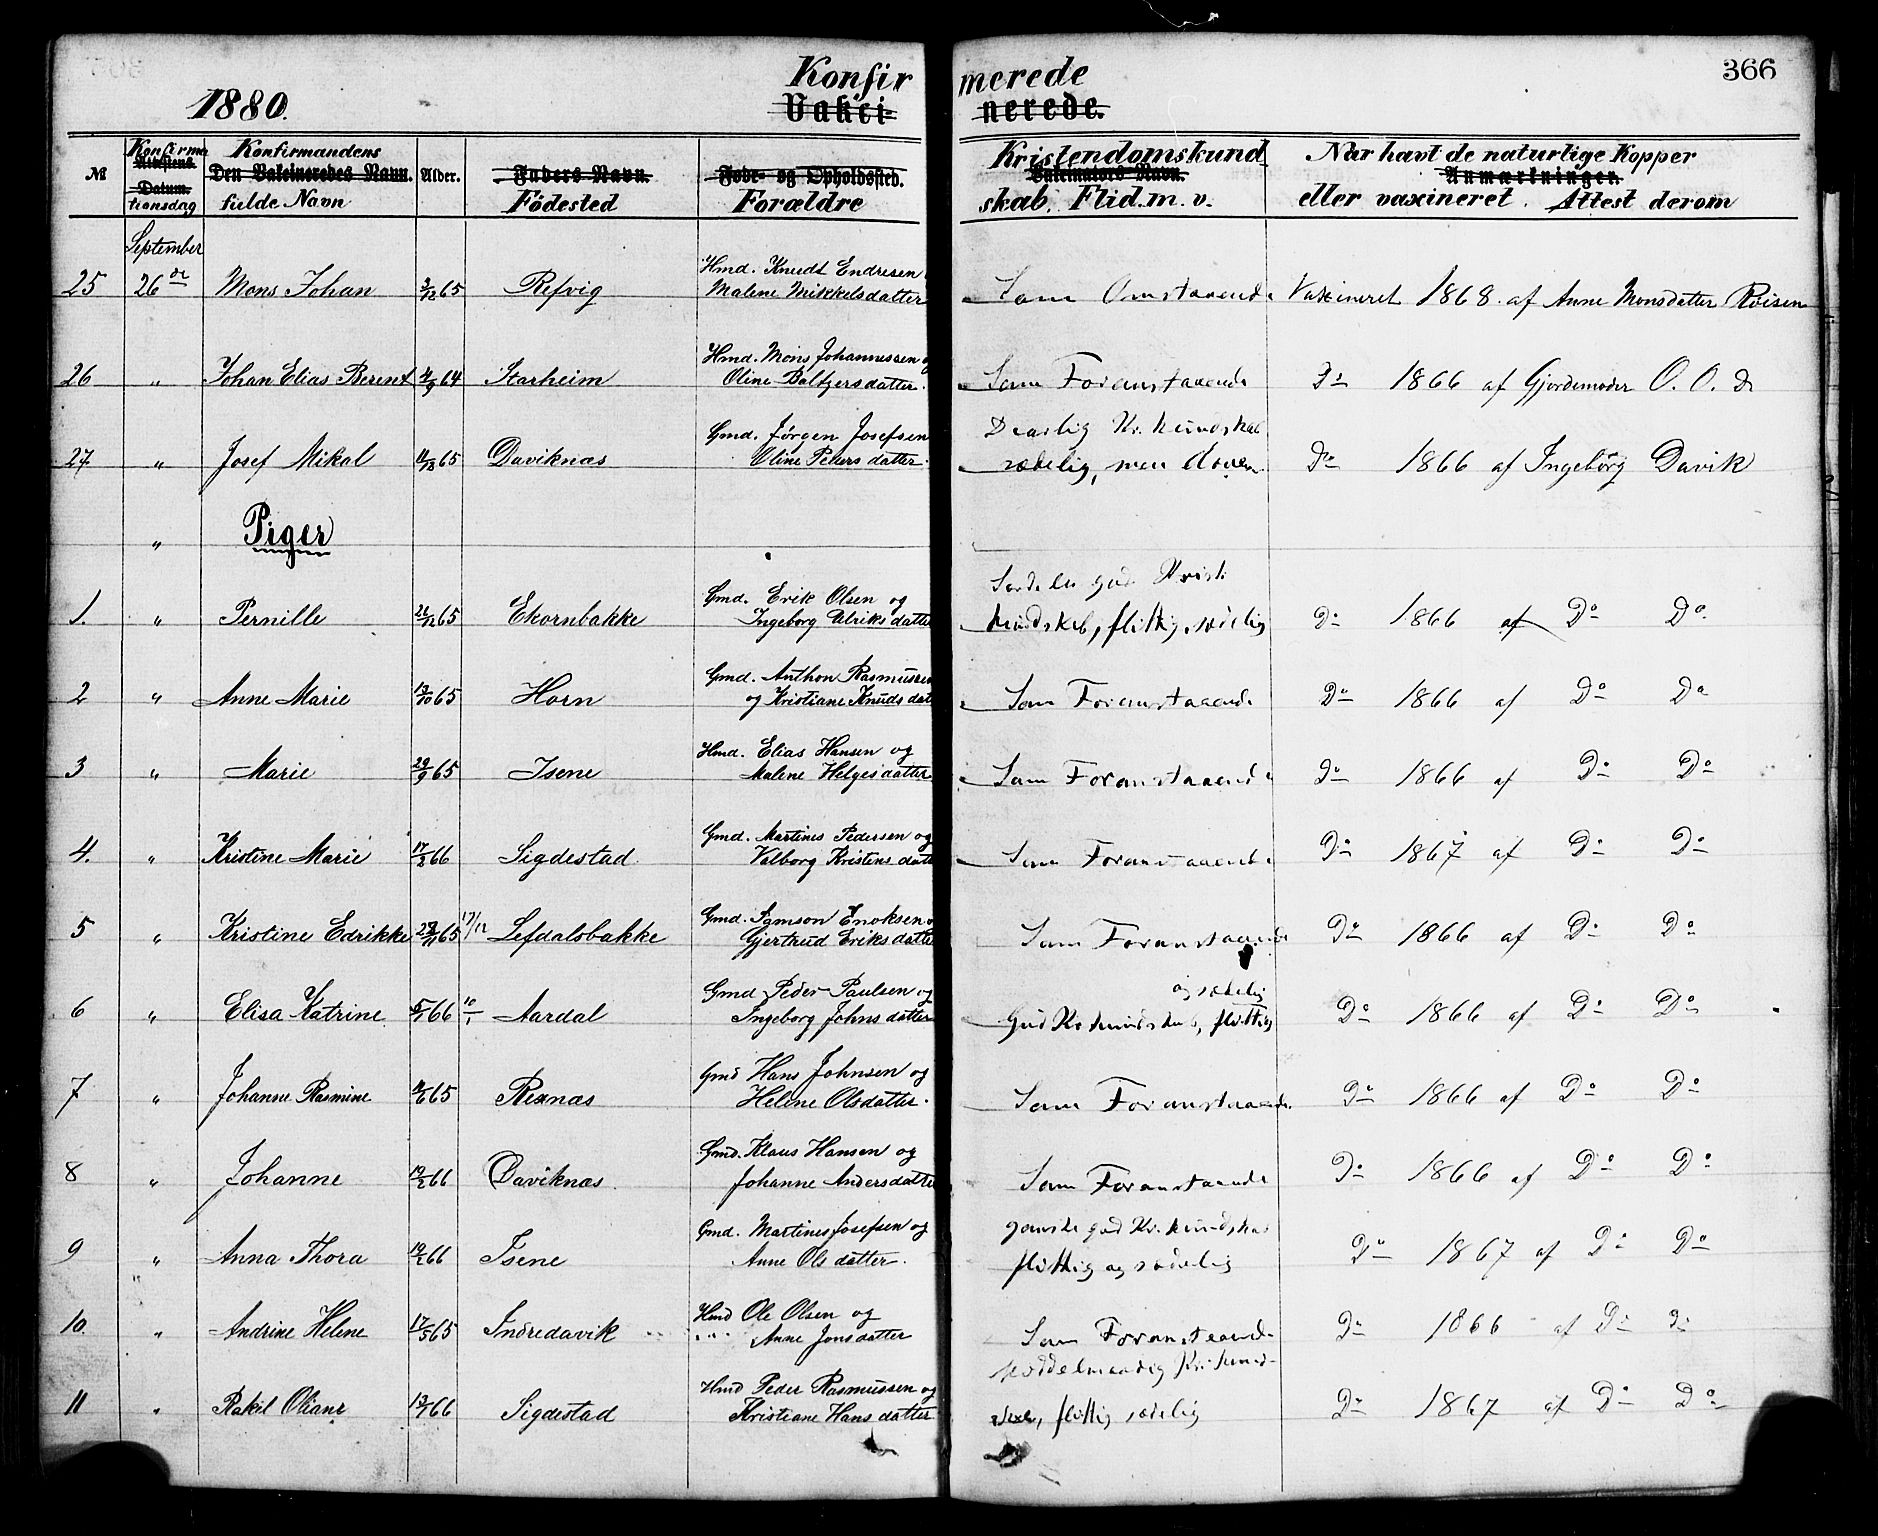 366
1880.
Konfirmerede
Vakcinerede.
№ Konfirmationsdag Attestens Datum. Konfirmandens fulde Navn Den Vakcineredes Navn. Alder. Faders Navn. Födested Fode- og Opholdssted. Forældre Kristendomskundskab. Flid. m. v. Vakcinators Navn. Naar havt de naturlige Kopper eller vaxineret. Attest derom Anmærkninger.
September
25 26de Mons Johan 3/12 65 Refvig Hmd. Knudt Endresen
Malene Mikkelsdatter Som Omstaaende Vaxineret 1868 af Anne Monsdatter
26 " Johan Elias Berent 64 Starheim Hmd. Mons Johannessen og
Oline Baltzersdatter. Som Foranstaaende Do 1866 af Gjordemoder O. O. D
27 " Josef Mikal 65 Daviknæs Gmd. Jørgen Josefsen
Oline Peders datter. Kr. kundskab
sædelig, men doven Do 1866 af Ingebörg Davik
" Piger
1. " Pernille 65 Ekornbakke Gmd. Erik Olsen og
Ingeborg Ulriks datter Særdeles god Krist.
kundskab, flittig, sædelig Do 1866 af Do Do
2 " Anne Marie 13/10 65 Horn Gmd. Anthon Rasmussen
og Kristiane Knuds dat Som Foranstaaende Do 1866 af Do Do
3 " Marie 29/9 65 Isene Hmd. Elias Hansen og
Malene Helgesdatter Som Foranstaaende Do 1866 af Do Do
4. " Kristine Marie 66 Sigdestad Gmd. Martines Pedersen og
Valborg Kristens datt Som Foranstaaende Do 1867 af Do Do
5 " Kristine Edrikke 65 17/12 Lefdalsbakke Gmd. Enoksen
Gjertrud Eriks datte Som Foranstaaende Do 1866 af Do Do
6 " Elisa Katrine 66 10/1 Aardal Gmd Peder Paulsen og
Ingeborg Johns datter God Kr. kundskab, flittig
og sædelig Do 1866 af Do Do
7 " Johanne Rasmine 65 Rexnæs Gmd Hans Johnsen og
Helene Olsdatter. Som Foranstaaende Do 1866 af Do Do
8 " Johanne 19/2 66 Daviknæs. Gmd. Klaus Hansen og
Johanne Andersdatte Som Foranstaaende Do 1866 af Do Do
9 " Anna Thora 66 Isene Gmd. Martines Josefsen og
Anne Ols datter. ganske god Kr. kundskab
flittig og sædelig Do 1867 af Do Do
10. " Andrine Helene 17/5 65 Indredavik Hmd Ole Olsen og
Anne Jonsdatter Som Foranstaaende Do 1866 af Do Do
11 " Rakil Oliane 66 Sigdestad Hmd Peder Rasmussen og
Kristiane Hans datter Middelmaadig Kr. kund-
skab, flittig sædelig Do 1867 af Do Do